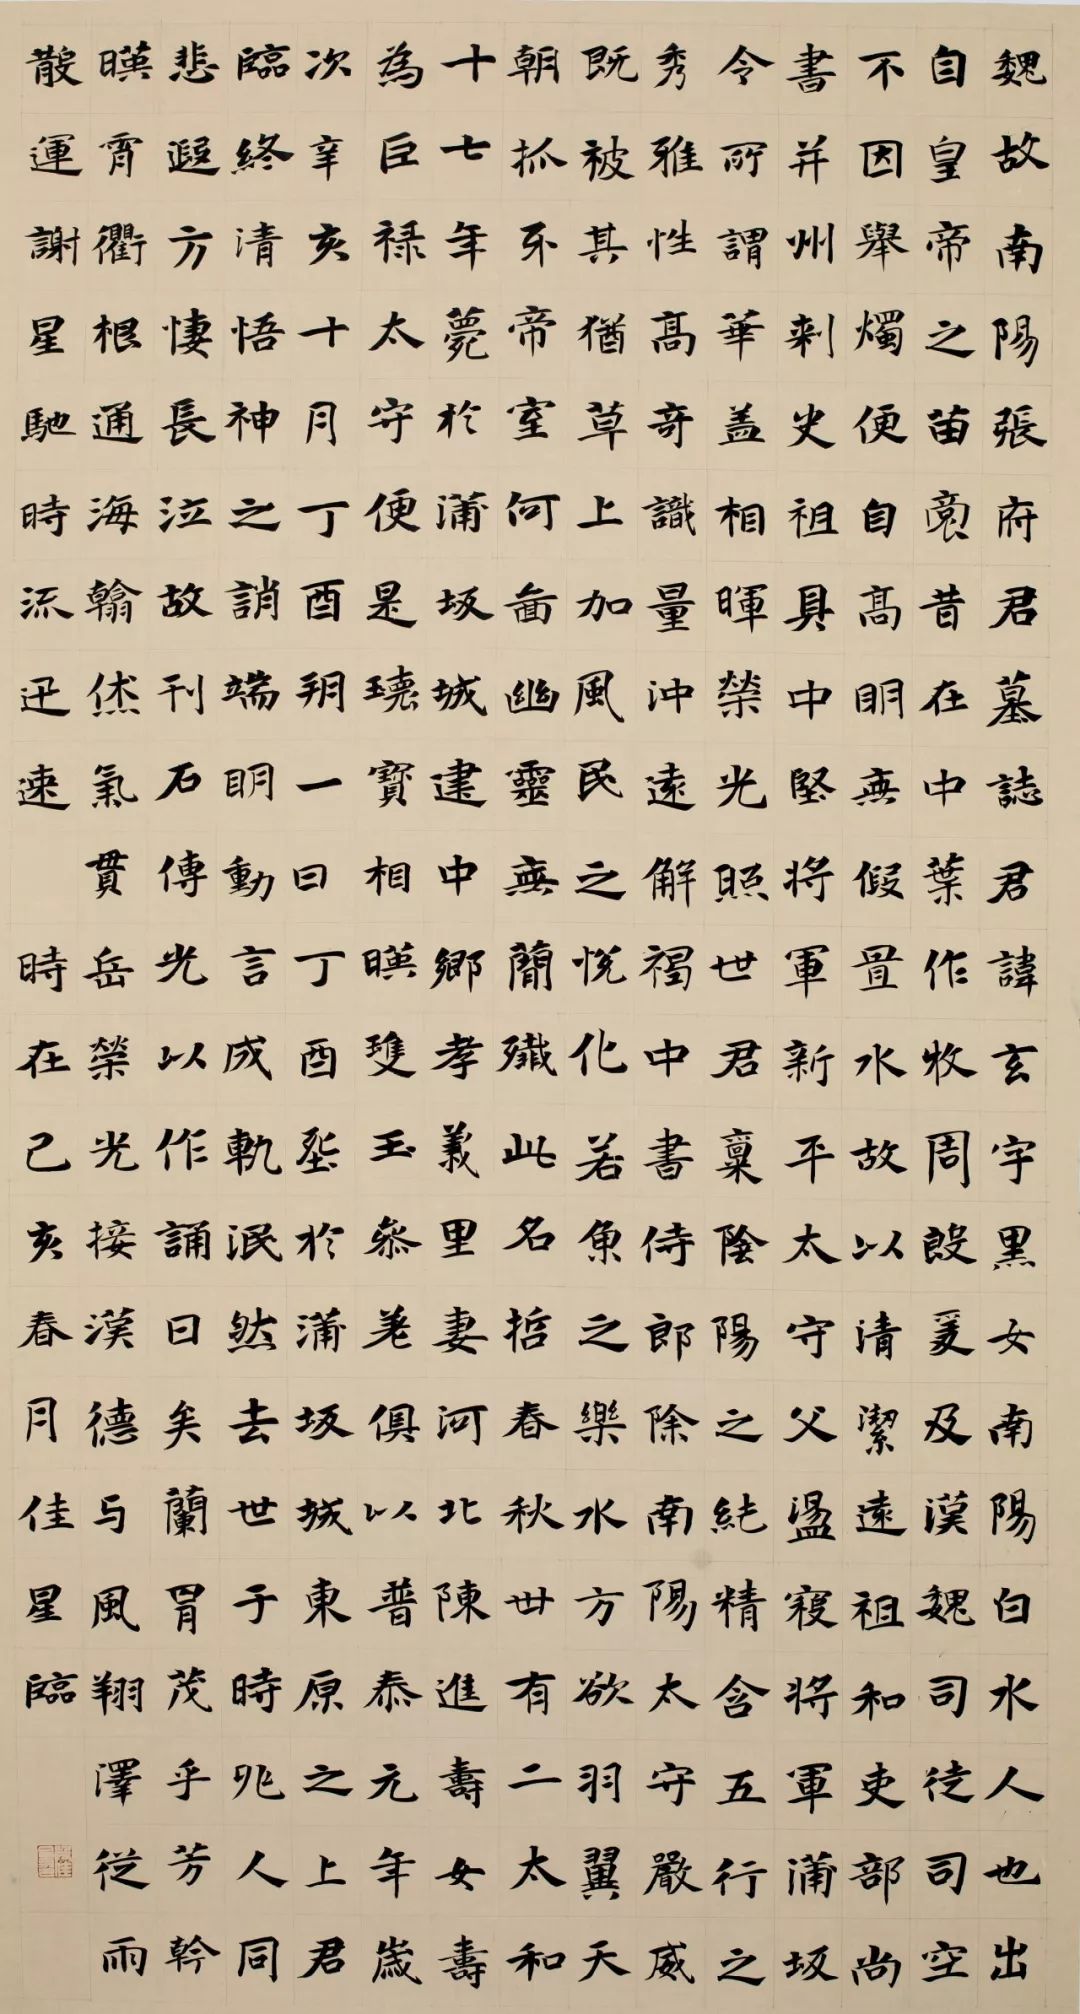 魏故南陽張府君墓誌君諱玄字黑女南陽白水人也出
自皇帝之苗裔昔在中葉作牧周殷爰及漢魏司徒司空
不因舉燭便自高明無假置水故以清潔遠祖和吏部尚
書并州刺史祖具中堅將軍新平太守父盪寇將軍蒲坂
令所謂華盖相暉榮光照世君稟陰陽之純精含五行之
秀雅性高奇識量沖遠解褐中書侍郎除南陽太守嚴威
既被其猶草上加風民之悅化若魚之樂水方欲羽翼天
朝抓牙帝室何啚幽靈無簡殲此名哲春秋卅有二太和
十七年薨於蒲坂城建中鄉孝義里妻河北陳進壽女壽
為巨禄太守便是瓌寶相暎雙玉參差俱以普泰元年歲
次辛亥十月丁酉朔一日丁酉葬於蒲坂城東原之上君
臨終清悟神之誚端明動言成軌泯然去世于時兆人同
悲遐方悽長泣故刊石傳光以作誦曰矣蘭胃茂乎芳幹
暎霄衢根通海翰烋氣貫岳榮光接漢德与風翔澤從雨
散運謝星馳時流迅速 時在己亥春月佳星臨